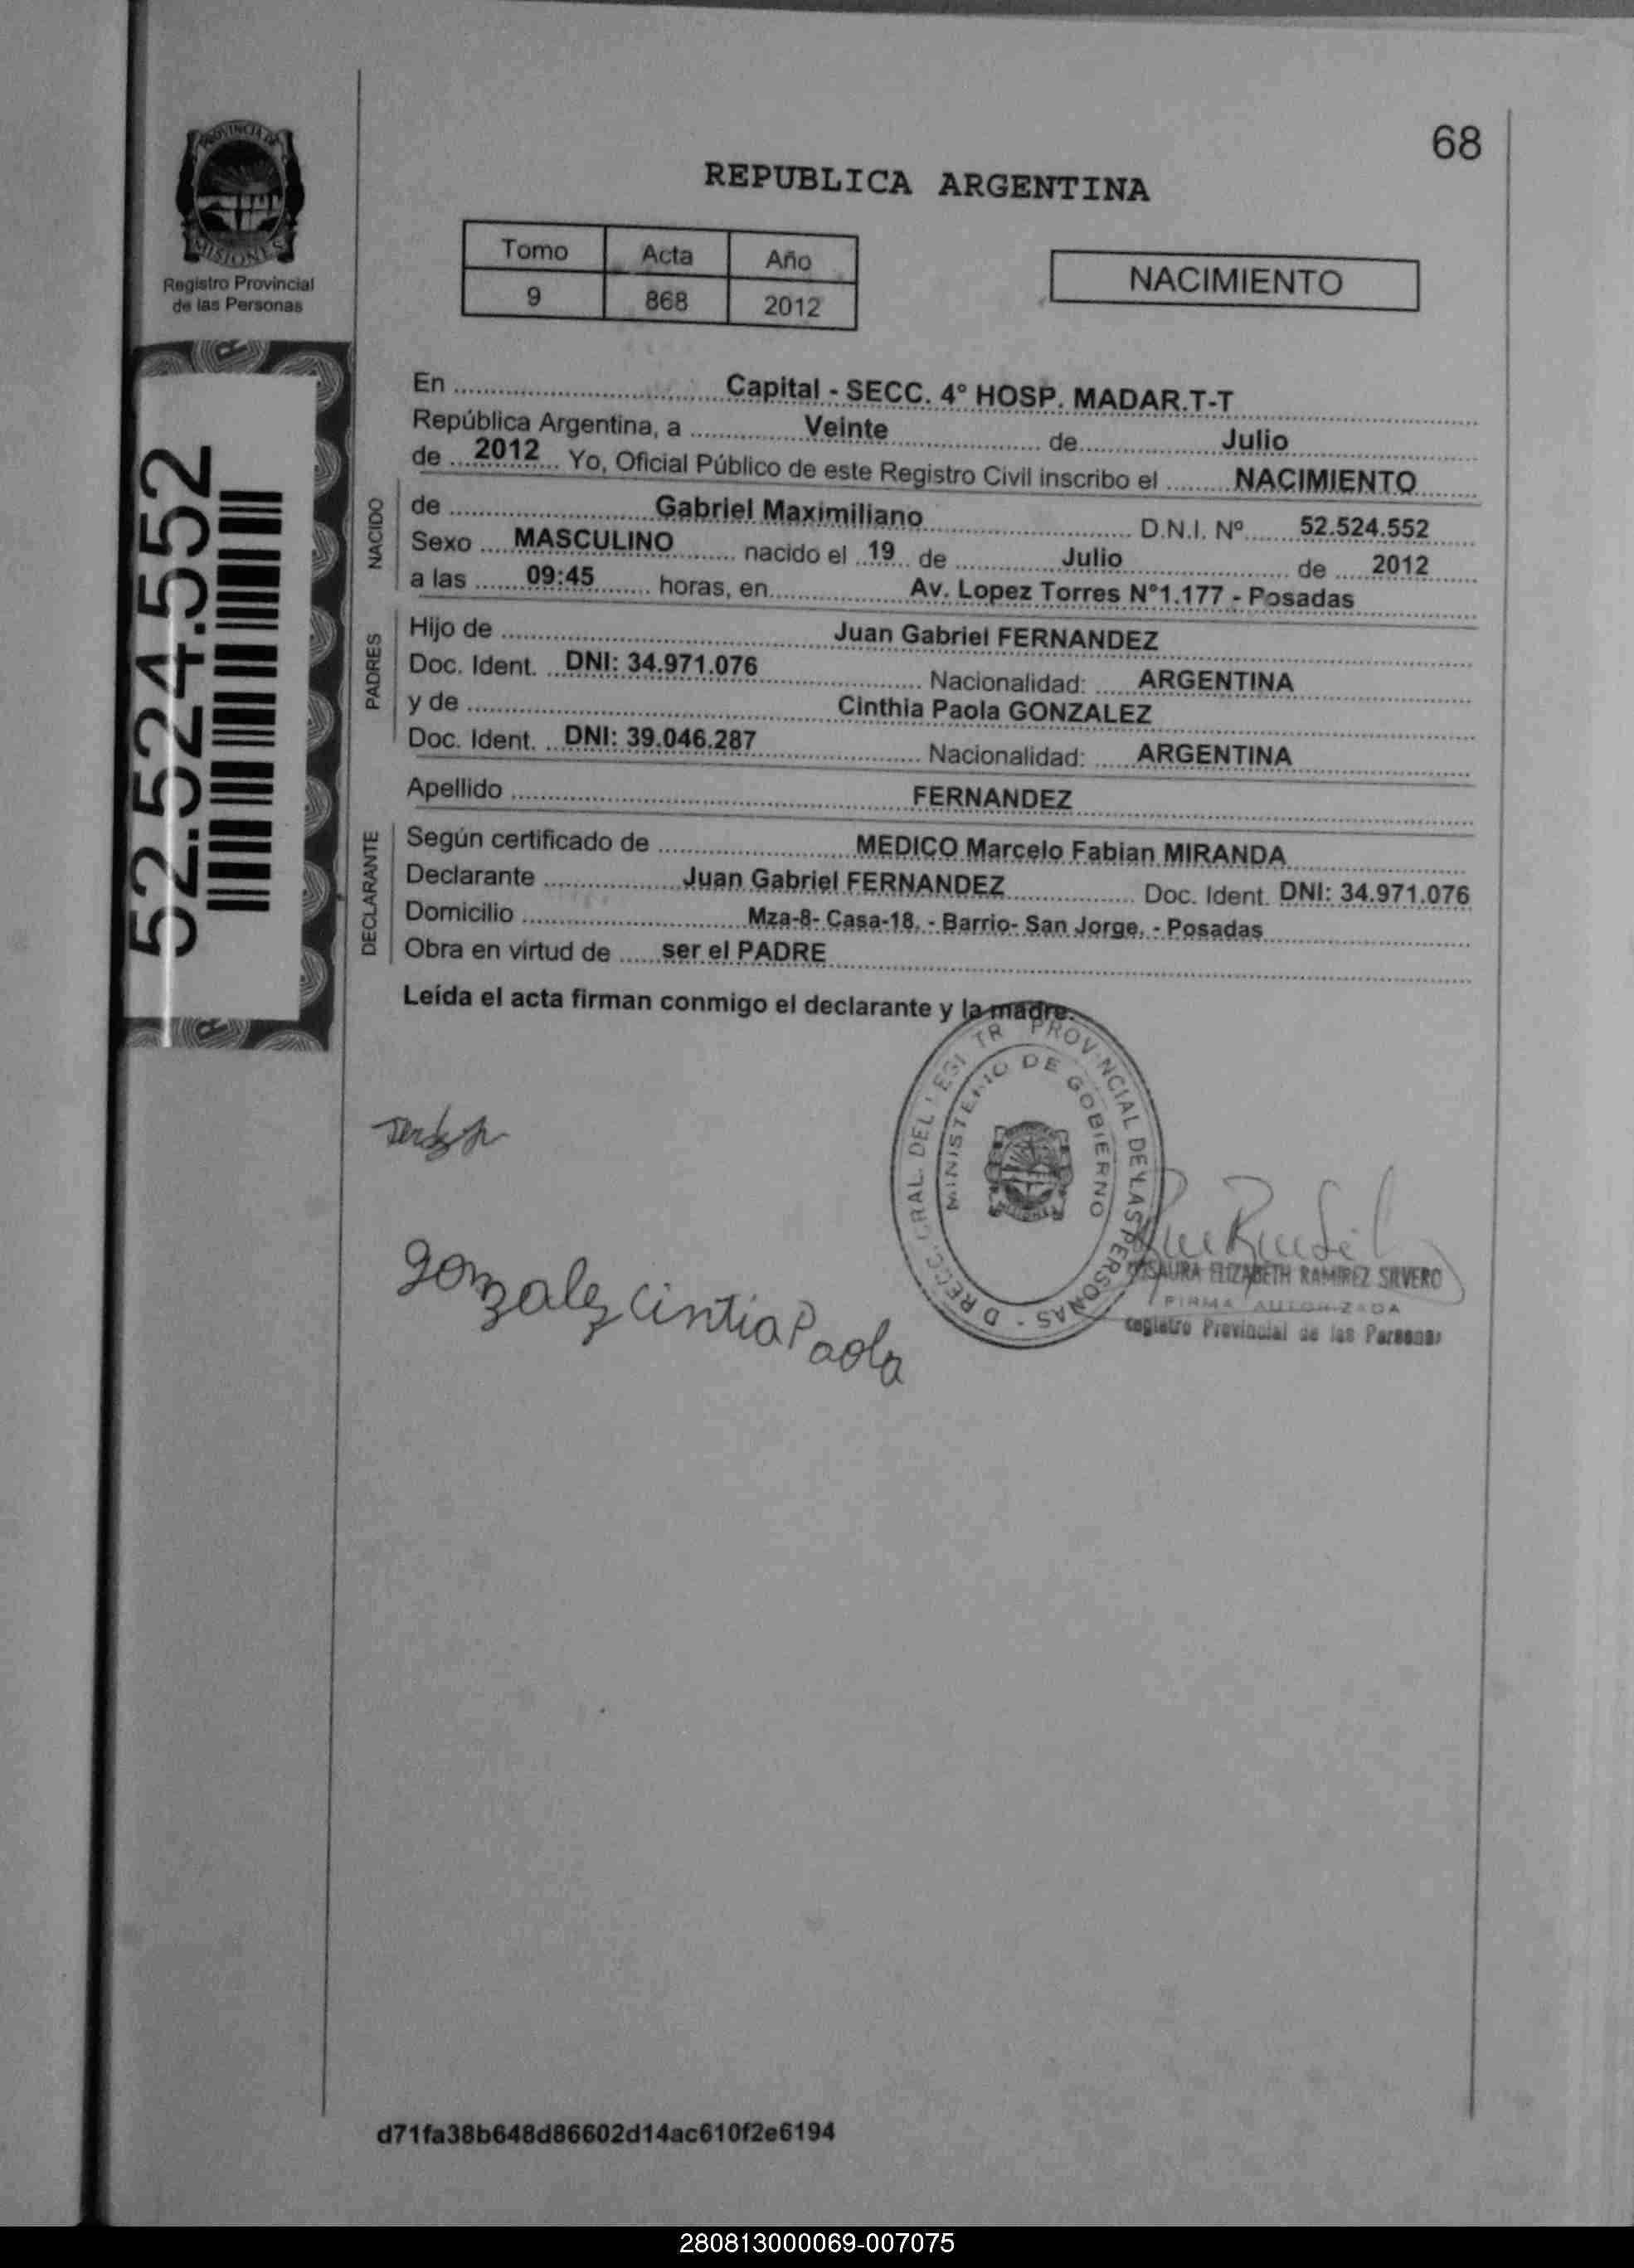 PROVINCIA DE
MISIONES
Registro Provincial
de las Personas
68
REPUBLICA ARGENTINA
Tomo Acta Año
9 868 2012
NACIMIENTO
52.524.552
En Capital - SECC. 4° HOSP. MADAR.T-T
República Argentina, a Veinte de Julio
de 2012 Yo, Oficial Público de este Registro Civil inscribo el NACIMIENTO
NACIDO
de Gabriel Maximiliano D.N.I. Nº 52.524.552
Sexo MASCULINO nacido el 19 de Julio de 2012
a las 09:45 horas, en Av. Lopez Torres N°1.177 - Posadas
PADRES
Hijo de Juan Gabriel FERNANDEZ
Doc. Ident. DNI: 34.971.076 Nacionalidad: ARGENTINA
y de Cinthia Paola GONZALEZ
Doc. Ident. DNI: 39.046.287 Nacionalidad: ARGENTINA
Apellido FERNANDEZ
DECLARANTE
Según certificado de MEDICO Marcelo Fabian MIRANDA
Declarante Juan Gabriel FERNANDEZ Doc. Ident. DNI: 34.971.076
Domicilio Mza-8- Casa-18. - Barrio- San Jorge. - Posadas
Obra en virtud de ser el PADRE
Leída el acta firman conmigo el declarante y la madre.
PROVINCIAL DE LAS PERSONAS
MINISTERIO DE GOBIERNO
gonzalez cintia Paola
ELIZABETH RAMIREZ SILVERO
FIRMA AUTORIZADA
Registro Provincial de las Personas
d71fa38b648d86602d14ac610f2e6194
280813000069-007075